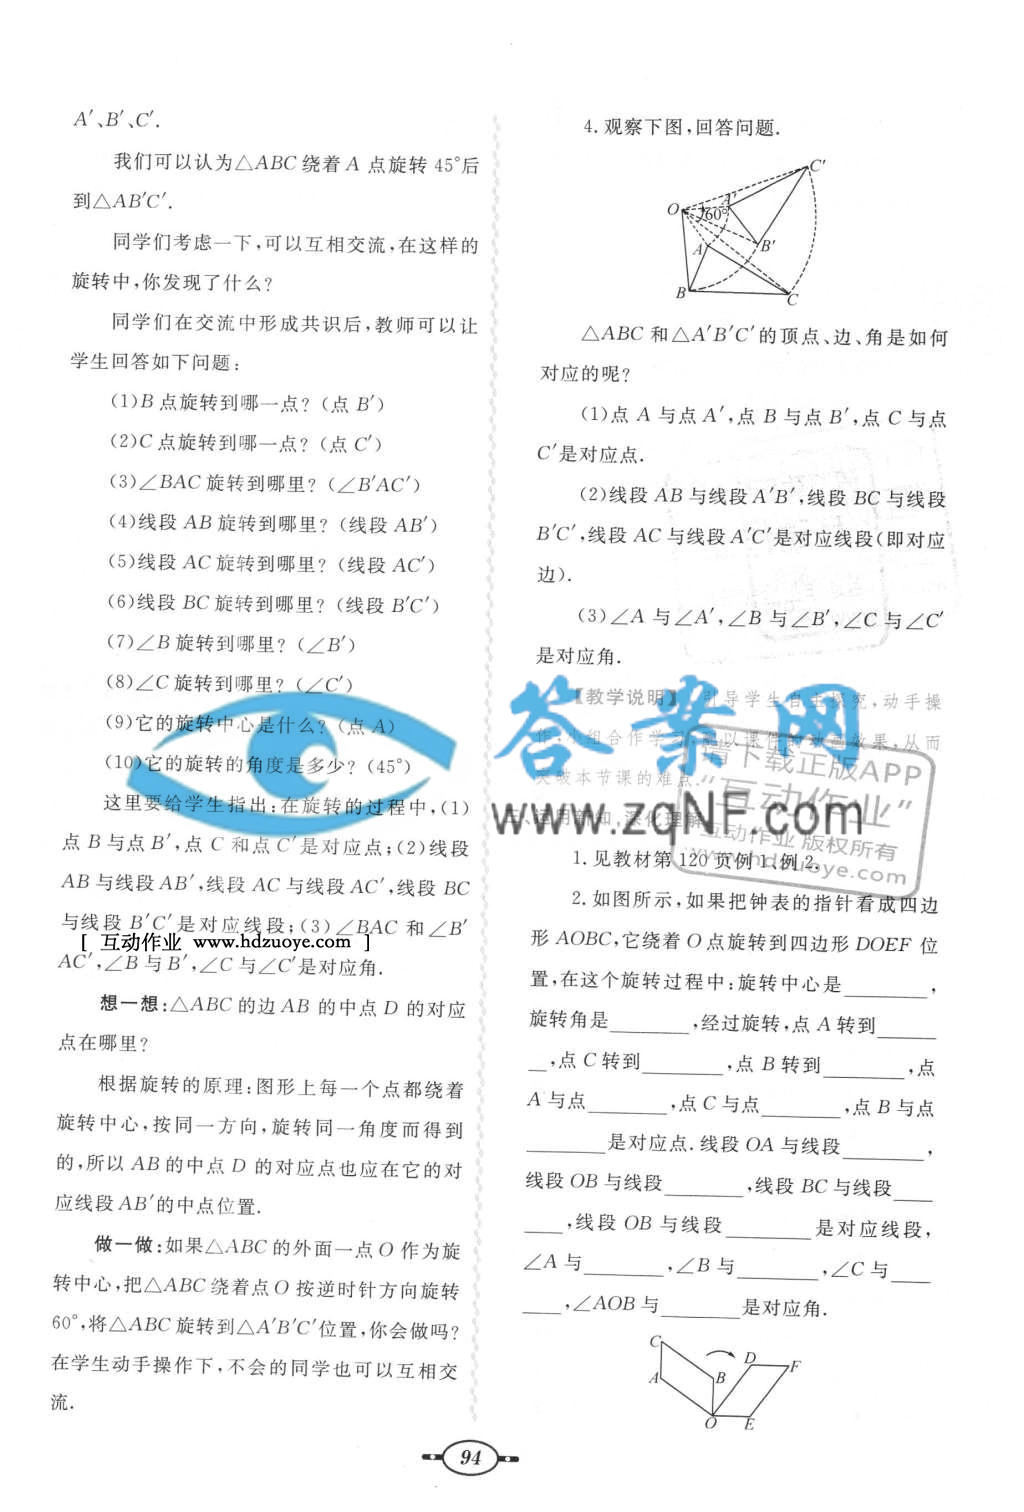 A′、B′、C′.
我们可以认为△ABC绕着A点旋转45°后
到△AB′C′.
同学们考虑一下,可以互相交流,在这样的
旋转中,你发现了什么?
同学们在交流中形成共识后,教师可以让
学生回答如下问题:
(1)B点旋转到哪一点?(点B′)
(2)C点旋转到哪一点?(点C′)
(3)∠BAC旋转到哪里?(∠B′AC′)
(4)线段AB旋转到哪里?(线段AB′)
(5)线段AC旋转到哪里?(线段AC′)
(6)线段BC旋转到哪里?(线段B′C′)
(7)∠B旋转到哪里?(∠B′)
(8)∠C旋转到哪里?(∠C′)
(9)它的旋转中心是什么?(点A)
(10)它的旋转的角度是多少?(45°)
这里要给学生指出:在旋转的过程中,(1)
点B与点B′,点C和点C′是对应点;(2)线段
AB与线段AB′,线段AC与线段AC′,线段BC
与线段B′C′是对应线段;(3)∠BAC和∠B′
[ 互动作业 www.hdzuoye.com ]
AC′,∠B与B′,∠C与∠C′是对应角.
想一想:△ABC的边AB的中点D的对应
点在哪里?
根据旋转的原理:图形上每一个点都绕着
旋转中心,按同一方向,旋转同一角度而得到
的,所以AB的中点D的对应点也应在它的对
应线段AB′的中点位置.
做一做:如果△ABC的外面一点O作为旋
转中心,把△ABC绕着点O按逆时针方向旋转
60°,将△ABC旋转到△A′B′C′位置,你会做吗?
在学生动手操作下,不会的同学也可以互相交
流.
4.观察下图,回答问题.
C′
A′
O
60°
B′
A
B
C
△ABC和△A′B′C′的顶点、边、角是如何
对应的呢?
(1)点A与点A′,点B与点B′,点C与点
C′是对应点.
(2)线段AB与线段A′B′,线段BC与线段
B′C′,线段AC与线段A′C′是对应线段(即对应
边).
(3)∠A与∠A′,∠B与∠B′,∠C与∠C′
是对应角.
【教学说明】 引导学生自主探究,动手操
作,小组合作学习,配以课件的动画效果,从而
突破本节课的难点.
答案网
www.zqNF.com
请下载正版APP
“互动作业”
互动作业 版权所有
www.hdzuoye.com
三、运用新知,深化理解
1.见教材第120页例1、例2.
2.如图所示,如果把钟表的指针看成四边
形AOBC,它绕着O点旋转到四边形DOEF位
置,在这个旋转过程中:旋转中心是________,
旋转角是________,经过旋转,点A转到______
__,点C转到________,点B转到________,点
A与点________,点C与点________,点B与点
________是对应点.线段OA与线段________,
线段OB与线段________,线段BC与线段____
____,线段OB与线段________是对应线段,
∠A与________,∠B与________,∠C与____
____,∠AOB与________是对应角.
C
D
F
A
B
O
E
94